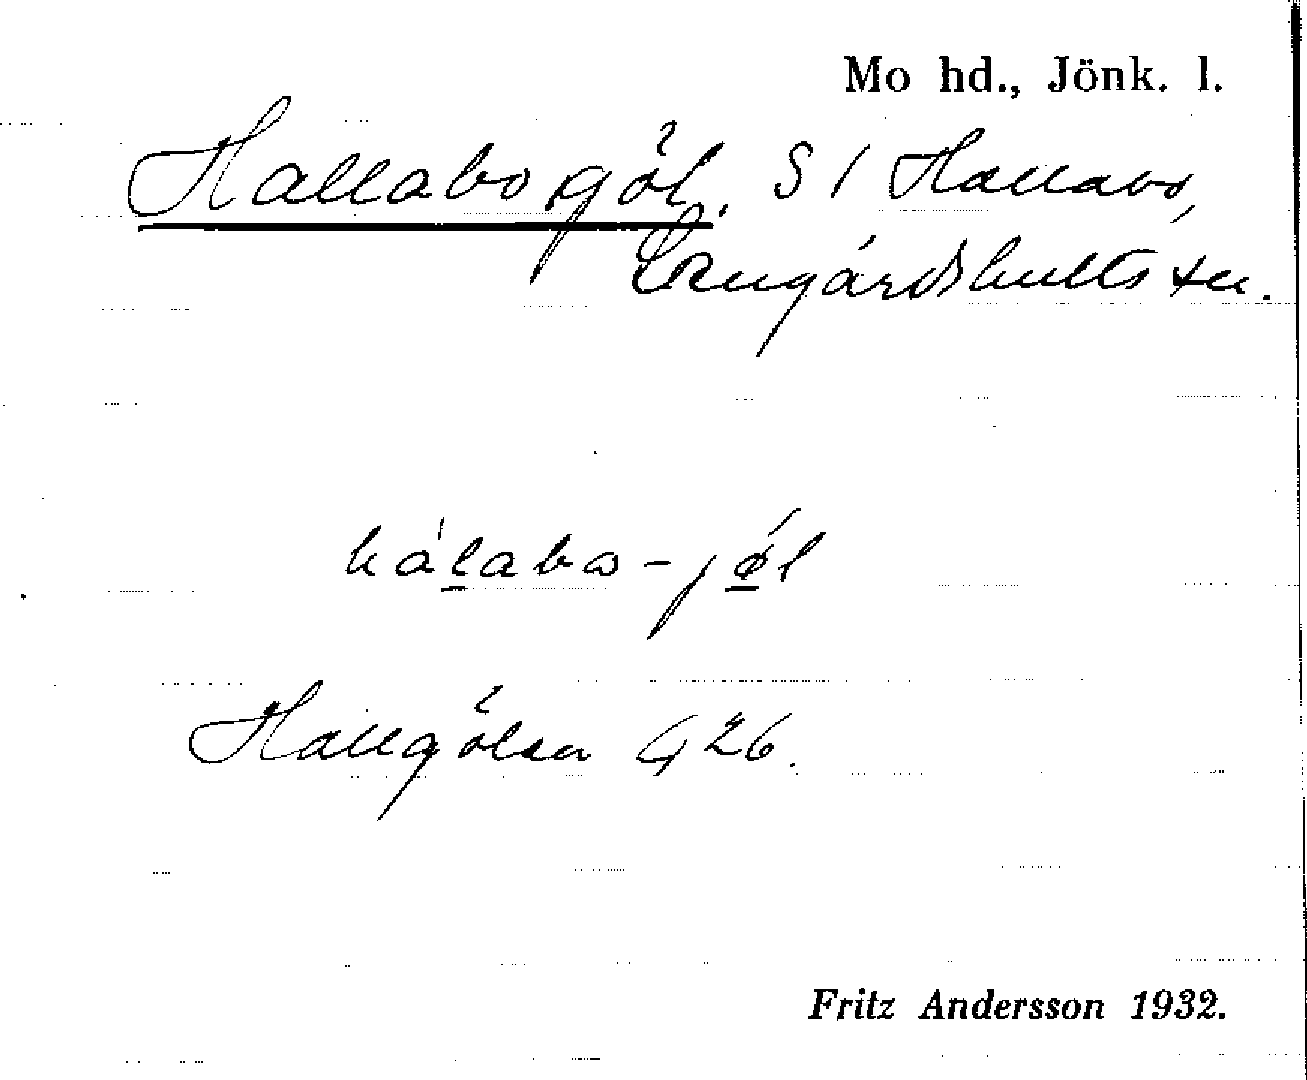 Mo hd., Jönk. l.
Hallabo göl. S l Hallabo,
Långårdshults sn.
hálabo-jǿl
Hallgölen G 26.
Fritz Andersson 1932.